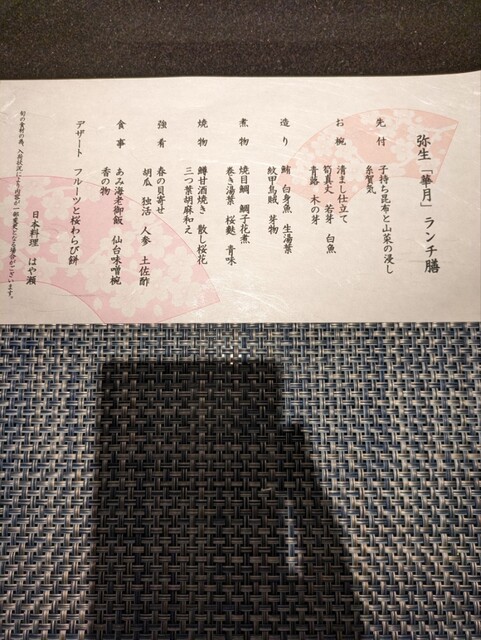 弥生「華月」ランチ膳
先付　子持ち昆布と山菜の浸し
糸賀気
お椀　清まし仕立て
筍真丈　若芽　白魚
青露　木の芽
造り　鮪　白身魚　生湯葉
紋甲烏賊　芽物
煮物　焼目鯛　鯛子花煮
巻き湯葉　桜麩　青味
焼物　鱒甘酒焼き　散し桜花
三つ葉胡麻和え
強肴　春の貝寄せ
胡瓜　独活　人参　土佐酢
食事　あみ海老御飯　仙台味噌椀
香の物
デザート　フルーツと桜わらび餅
日本料理　はや瀬
旬の食材の為、入荷状況により内容が一部変更となる場合がございます。